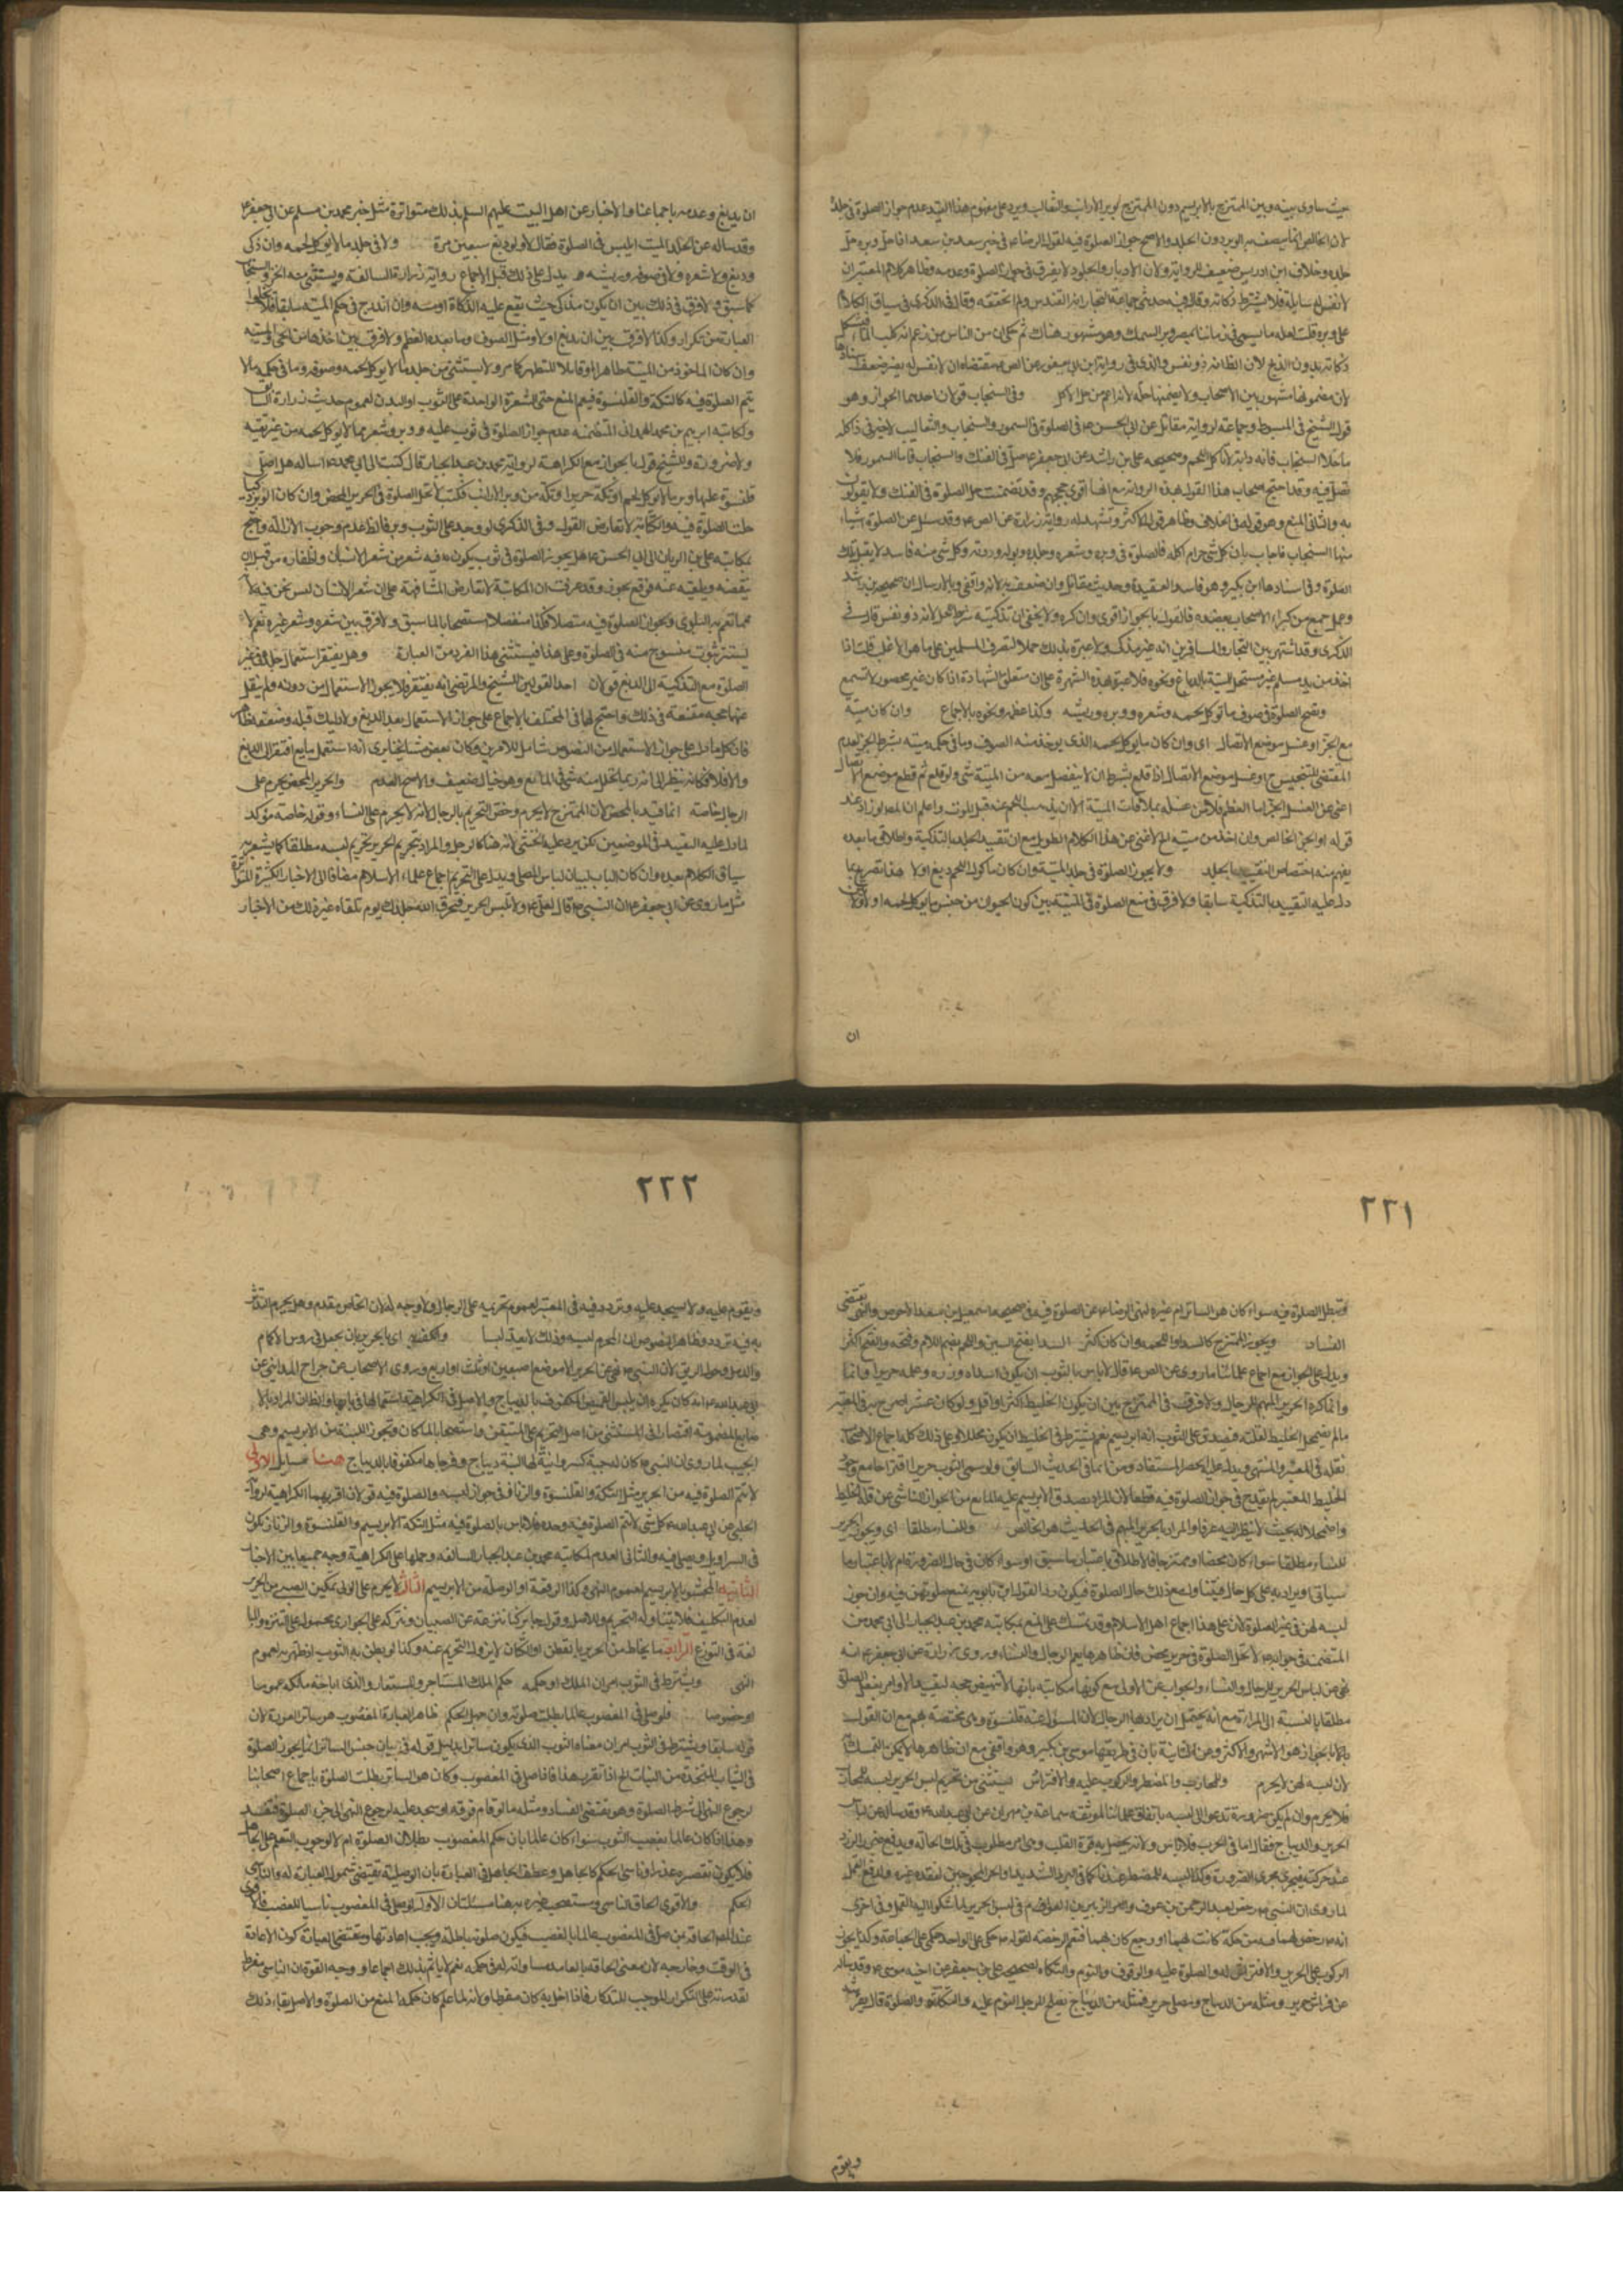 حيث ساوى بينه وبين الممتزج بالابريسم دون الممتزج بوبر الارانب والثعالب ويرد على مفهوم هذا القيد عدم جواز الصلوة فى جلده
لان الخالص انما يصف به الوبر دون الجلد والاصح جواز الصلوة فيه لقول الرضا ع فى خبر سعد بن سعد اذا حل وبره حل
جلده وخلاف ابن ادريس ضعيف للرواية ولان الاوبار والجلود لا يفرق فى جواز الصلوة وعدمه وظاهر كلام المعتبر ان
لا نفس له سايلة فلا يشترط ذكاته وقال فيه حدثنى جماعة من التجار انه القندس ولم اتحققه وقال فى الذكرى فى سياق الكلام
على وبره قلت لعله ما يسمى فى زماننا بمصر وبر السمك وهو مشهور هناك ثم حكى ان من الناس من زعم انه كلب الماء فيشكل
ذكاته بدون الذبح لان الظاهر انه ذو نفس والذى فى رواية ابن ابى يعفور عن الص ع مقتضاه ان لا نفس له
لان مضمونها مشهور بين الاصحاب وفى السنجاب قولان احدهما الجواز وهو
قول الشيخ فى المبسوط وجماعة لرواية مقاتل عن ابى الحسن ع فى الصلوة فى السمور والسنجاب والثعالب لا خير فى ذا كله
ما خلا السنجاب فانه دابة لا تاكل اللحم وصحيحة على بن راشد عن ابى جعفر ع صل فى الفنك والسنجاب فاما السمور فلا
تصل فيه وقد احتج اصحاب هذا القول بهذه الرواية مع انها اقوى حججهم وقد تضمنت حل الصلوة فى الفنك ولا يقولون
به والثانى المنع وهو قوله فى الخلاف وظاهر قول الاكثر وتشهد له رواية زرارة عن الص ع وقد سئل عن الصلوة فى اشياء
منها السنجاب فاجاب بان كل شئ حرام اكله فالصلوة فى وبره وشعره وجلده وبوله وروثه وكل شئ منه فاسد لا يقبل تلك
الصلوة وفى اسنادها ابن بكير وهو فاسد العقيدة وحديث مقاتل وان ضعف به لانه واقفى وبالارسال الا ان صحيحة ابن راشد
وعمل جمع من كبراء الاصحاب يعضده فالقول بالجواز اقوى وان كره ولا يخفى ان تذكيته شرط الحل لانه ذو نفس قال فى
الذكرى وقد اشتهر بين التجار والمسافرين انه غير مذكى ولا عبرة بذلك حملا لتصرف المسلمين على ما هو الاغلب قلت اذا
اخذ من يد مسلم غير مستحل الميتة بالدباغ ونحوه فلا عبرة بهذه الشهرة على ان متعلق الشهادة اذا كان غير محصور لا تسمع
وتصح الصلوة فى صوف ما يؤكل لحمه وشعره ووبره وريشه وكذا عظمه ونحوه بالاجماع وان كان ميتة
مع الجز او غسل موضع الاتصال اى وان كان ما يؤكل لحمه الذى يوخذ منه الصوف وما فى حكمه ميتة بشرط الجز لعدم
المقتضى للتنجيس ح او غسل موضع الاتصال اذا قلع بشرط ان لا ينفصل معه من الميتة شئ ولو قلع ثم قطع موضع الاتصال
اغنى عن الغسل الجز اما العظم فلا بد من غسله بملاقات الميتة الا ان يذهب اللحم عنه قبل الموت واعلم ان المص لو زاد عند
قوله او الخز الخالص وان اخذ من ميته الخ لاغنى عن هذا الكلام الطويل مع ان تقييد الجلد بالتذكية واطلاق ما بعده
يفهم منه اختصاص التقييد بالجلد ولا يجوز الصلوة فى جلد الميتة وان كان ماكول اللحم دبغ او لا هذا تصريح بما
دل عليه التقييد بالتذكية سابقا ولا فرق فى منع الصلوة فى الميتة بين كون الحيوان من جنس ما يوكل لحمه او لا
ان
ان يدبغ وعدمه باجماعنا والاخبار عن اهل البيت عليهم السلم بذلك متواترة مثل خبر محمد بن مسلم عن ابى جعفر ع
وقد ساله عن الجلد الميت ايلبس فى الصلوة فقال لا ولو دبغ سبعين مرة ولا فى جلد ما لا يؤكل لحمه وان ذكى
ودبغ ولا شعره ولا صوفه وريشه يدل على ذلك قبل الاجماع رواية زرارة السالفة ويستثنى منه الخز والسنجاب
كما سبق ولا فرق فى ذلك بين ان يكون مذكى حيث يقع عليه الذكاة او ميته وان اندرج فى حكم الميتة سابقا
العبارة من تكرار وكذا لا فرق بين ان يدبغ او لا ومثل الصوف وما بعده العظم ولا فرق بين اخذها من الحى والميته
وان كان الماخوذ من الميتة طاهرا او قابلا للتطهر كما مر ولا يستثنى من جلد ما لا يوكل لحمه وصوفه وما فى حكمه ما لا
يتم الصلوة فيه كالتكة والقلنسوة فيعم المنع حتى الشعرة الواحدة على الثوب او البدن لعموم حديث زرارة السالف
ولمكاتبة ابرهيم بن محمد الهمدانى المتضمنة عدم جواز الصلوة فى ثوب عليه وبر وشعر مما لا يوكل لحمه من غير تقية
ولا ضرورة وللشيخ قول بالجواز مع الكراهة لرواية محمد بن عبد الجبار قال كتبت الى ابى محمد ع اساله هل اصلى
قلنسوة عليها وبر ما لا يوكل لحمه او تكة حرير او تكة من وبر الارانب فكتب لا تحل الصلوة فى الحرير المحض وان كان الوبر ذكيا
حلت الصلوة فيه والمكاتبة لا تعارض القول وفى الذكرى لو وجد على الثوب وبر فالظاهر عدم وجوب الازالة واحتج
بمكاتبة على بن الريان الى ابى الحسن ع هل يجوز الصلوة فى ثوب يكون فيه شعر من شعر الانسان واظفاره من قبل ان
ينفضه ويلقيه عنه فوقع يجوز وقد عرفت ان المكاتبة لا تعارض المشافهة على ان شعر الانسان ليس مما نحن فيه لانه
مما تعم به البلوى ويجوز الصلوة فيه متصلا وكذا منفصلا استصحابا لما سبق ولا فرق بين شعره وشعر غيره نعم لا
يستتر بثوب منسوج منه فى الصلوة وعلى هذا فيستثنى هذا الفرد من العبارة وهل يفتقر استعمال جلده فى غير
الصلوة مع التذكية الى الدبغ قولان احد القولين للشيخ والمرتضى انه يفتقر فلا يجوز الاستعمال من دونه ولم ينقل
عنهما حجه مقنعة فى ذلك واحتج لهما فى المختلف بالاجماع على جواز الاستعمال بعد الدبغ ولا دليل قبله وضعفه ظاهر
فان كل ما دل على جواز الاستعمال من النصوص شامل للامرين وكان بعض مشايخنا يرى انه ان استعمل ما يع افتقر الى الدبغ
والا فلا فكانه ينظر الى انه ربما تحلل منه شئ فى المايع وهو خيال ضعيف والاصح العدم والحرير المحض يحرم على
الرجال خاصة انما قيد بالمحض لان الممتزج لا يحرم وخص التحريم بالرجال لانه لا يحرم على النساء وقوله خاصة مؤكد
لما دل عليه القيد فى الموضعين لكن يرد عليه الخنثى لانه هنا كالرجل والمراد بتحريم الحرير تحريم لبسه مطلقا كما يشعر به
سياق الكلام بعده وان كان الباب لبيان لباس المصلى ويدل على التحريم اجماع علماء الاسلام مضافا الى الاخبار الكثيرة المتواترة
مثل ما روى عن ابى جعفر ع ان النبى ص قال لعلى ع ولا تلبس الحرير فيحرق الله جلدك يوم تلقاه وغير ذلك من الاخبار
٢٢١
وتبطل الصلوة فيه سواء كان هو الساتر ام غيره لنهى الرضا ع عن الصلوة فيه فى صحيحة اسمعيل بن سعد الاحوص والنهى يقتضى
الفساد ويجوز الممتزج كالسدا او اللحمه وان كان اكثر السدا بفتح السين واللحمه بضم اللام وفتحه والفتح اكثر
ويدل على الجواز مع اجماع علمائنا ما روى عن الص ع قال لا باس بالثوب ان يكون سداه وزره وعلمه حريرا وانما
وانما كره الحرير المبهم للرجال ولا فرق فى الممتزج بين ان يكون الخليط اكثر او اقل ولو كان عشرا صرح به فى المعتبر
ما لم يضمحل الخليط لقلته ويصدق على الثوب انه ابريسم نعم يشترط فى الخليط ان يكون محللا وعلى ذلك كله اجماع الاصحاب
نقله فى المعتبر والمنتهى ويدل عليه الحصر المستفاد من انما فى الحديث السابق ولو سمى الثوب حريرا اقتراحا مع وجود
الخليط المعتبر لم يقدح فى جواز الصلوة فيه قطعا لان المراد بصدق الابريسم عليه المانع من الجواز الناشى عن قلة الخليط
واضمحلاله بحيث لا ينظر اليه عرفا والمراد بالحرير المبهم فى الحديث هو الخالص وللنساء مطلقا اى ويجوز الحرير
للنساء مطلقا سواء كان محضا او ممتزجا فالاطلاق باعتبار ما سبق او سواء كان فى حال الضرورة ام لا باعتبار ما
سياتى او يراد به على كل حال فيتناول مع ذلك حال الصلوة فيكون ردا لقول ابن بابويه بمنع صلوتهن فيه وان جوز
لبسه لهن فى غير الصلوة لان على هذا اجماع اهل الاسلام وقد تمسك على المنع بمكاتبة محمد بن عبد الجبار الى ابى محمد ع
المتضمنة فى جوابه ع لا تحل الصلوة فى حرير محض فان ظاهرها يعم الرجال والنساء وروى زرارة عن ابى جعفر ع انه
نهى عن لباس الحرير للرجال والنساء والجواب عن الاولى مع كونها مكاتبة بانها لا تنهض حجه لتقييد الاوامر بفعل الصلوة
مطلقا بالنسبة الى المراة مع انه يحتمل ان يراد بها الرجال لان المسؤل عنه قلنسوة وهى مختصة بهم مع ان القول
بالجواز هو الاشهر والاكثر وعن الثانية بان فى طريقها موسى بن بكير وهو واقفى مع ان ظاهرها لا يمكن التمسك به
لان لبسه لهن لا يحرم وللمحارب والمضطر والركوب عليه والافتراش يستثنى من تحريم لبس الحرير لبسه للمحارب
فلا يحرم وان لم يكن ضرورة تدعوا الى لبسه باتفاق علمائنا لموثقة سماعة بن مهران عن ابى عبد الله ع وقد ساله عن لباس
الحرير والديباج فقال اما فى الحرب فلا باس ولانه يحصل به قوة القلب وهى امر مطلوب فى تلك الحالة ويدفع ضرر الزرد
عند حركته فيجرى مجرى الضرورة وكذا لبسه للمضطر عند ذلك كما فى البرد الشديد او الحر المحوجين لفقد غيره ولدفع القمل
لما روى ان النبى ص رخص لعبد الرحمن بن عوف والزبير بن العوام فى لبس الحرير لما شكوا اليه القمل وفى اخرى
انه ص رخص لهما فيه من حكة كانت لهما او وجع كان بهما فتعم الرخصة لقوله ص حكمى على الواحد حكمى على الجماعة وكذا يجوز
الركوب على الحرير والافتراش له والصلوة عليه والوقوف والنوم والتكاه لصحيحة على بن جعفر عن اخيه موسى ع وقد ساله
عن فراش حرير ومثله من الديباج ومصلى حرير ومثله من الديباج يصلح للرجل النوم عليه والتكاءة والصلوة قال يفرشه
ويقوم
٢٢٢
ويقوم عليه ولا يسجد عليه وتردد فيه فى المعتبر لعموم تحريمه على الرجال ولا وجه له لان الخاص مقدم وهل يحرم التدثر
به فيه تردد وظاهر النصوص ان المحرم لبسه وذلك لا يعد لبسا والكف به اى بالحرير بان يجعل فى روس الاكمام
والذيل وحول الزيق لان النبى ص نهى عن الحرير الا موضع اصبعين او ثلث او اربع وروى الاصحاب عن جراح المداينى عن
ابى عبد الله ع انه كان يكره ان يلبس القميص المكفوف بالديباج والاصل فى الكراهة استعمالها فى بابها والظاهر ان المراد بالا
صابع المضمومة اقتصارا فى المستثنى من اصل التحريم على المتيقن واستصحابا لما كان وتجوز اللبنة من الابريسم وهى
الجيب لما روى ان النبى ص كان له جبة كسروانية لها لبنة ديباج وفرجاها مكفوفة بالديباج هنا مسايل الاولى
لا تتم الصلوة فيه من الحرير مثل التكة والقلنسوة والزنار فى جواز لبسه والصلوة فيه قولان اقربهما الكراهية لرواية
الحلبى عن ابى عبد الله ع كل شئ لا تتم الصلوة فيه وحده فلا باس بالصلوة فيه مثل التكة الابريسم والقلنسوة والزنار يكون
فى السراويل ويصلى فيه والثانى العدم لمكاتبة محمد بن عبد الجبار السالفه وحملها على الكراهية وجه جمعا بين الاخبار
الثانية المحشو بالابريسم لعموم النهى وكذا الرقعة او الوصلة من الابريسم الثالث لا يحرم على الولى تمكين الصبى من الحرير
لعدم التكليف فلا يتناوله التحريم وللاصل وقول جابر كنا ننزعه عن الصبيان ونتركه على الجوارى محمول على التنزه والمبا
لغة فى التورع الرابعة ما يخاط من الحرير بالقطن او الكتان لا يزول التحريم عنه وكذا لو بطن به الثوب او ظهر به لعموم
النهى ويشترط فى الثوب امران الملك او حكمه حكم الملك المستاجر والمستعار والذى اباحه مالكه عموما
او خصوصا فلو صلى فى المغصوب عالما بطلت صلوته وان جهل الحكم ظاهر العبارة المغصوب هو ساتر العورة لان
قوله سابقا ويشترط فى الثوب امران معناه الثوب الذى يكون ساترا بدليل قوله فى بيان جنس الساتر انما يجوز الصلوة
فى الثياب المتخذة من النبات الخ اذا تقرر هذا فاذا صلى فى المغصوب وكان هو الساتر بطلت الصلوة باجماع اصحابنا
لرجوع النهى الى شرط الصلوة وهو يقتضى الفساد ومثله ما لو قام فوقه او سجد عليه لرجوع النهى الى جزء الصلوة فتفسد
وهذا اذا كان عالما بغصب الثوب سواء كان عالما بان حكم المغصوب بطلان الصلوة ام لا لوجوب التعلم على الجاهل
فلا يكون تقصيره عذرا وناسى الحكم كالجاهل وعطف الجاهل فى العبارة بان الوصلية يقتضى شمول العبارة له والناسى
الحكم والاقوى الحاق الناسى ومستصحب غيره به هنا مسئلتان الاولى لو صلى فى المغصوب ناسيا للغصب فالاقوى
عند المص الحاقه بمن صلى فى المغصوب عالما بالغصب فيكون صلوته باطلة ويجب اعادتها ومقتضى العبارة كون الاعادة
فى الوقت وخارجه لان معنى الحاقه بالعامد مساواته له فى حكمه نعم لا ياثم بذلك اجماعا ووجه القوة ان الناسى مفرط
لقدرته على التكرار الموجب للتذكار فاذا اخل به كان مفرطا ولانه لما علم كان حكمه المنع من الصلوة والاصل بقاء ذلك